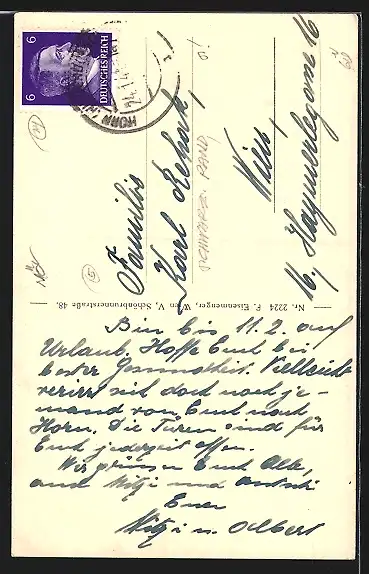 6 DEUTSCHES REICH 6
HORN
Familie
Karl
Wien,
16, Haymerlegasse 16
Nr. 2224 F. Eisenmenger, Wien V, Schönbrunnerstraße 48.
Bin bis 11.2. auf
Urlaub. Hoffe Euch bei
bester Gesundheit. Vielleicht
verirrt sich doch noch je-
mand von Euch nach
Horn. Die Türen sind für
Euch jederzeit offen.
Wir grüssen Euch Alle,
auch Mitzi und
Euer
Mitzi u. Albert